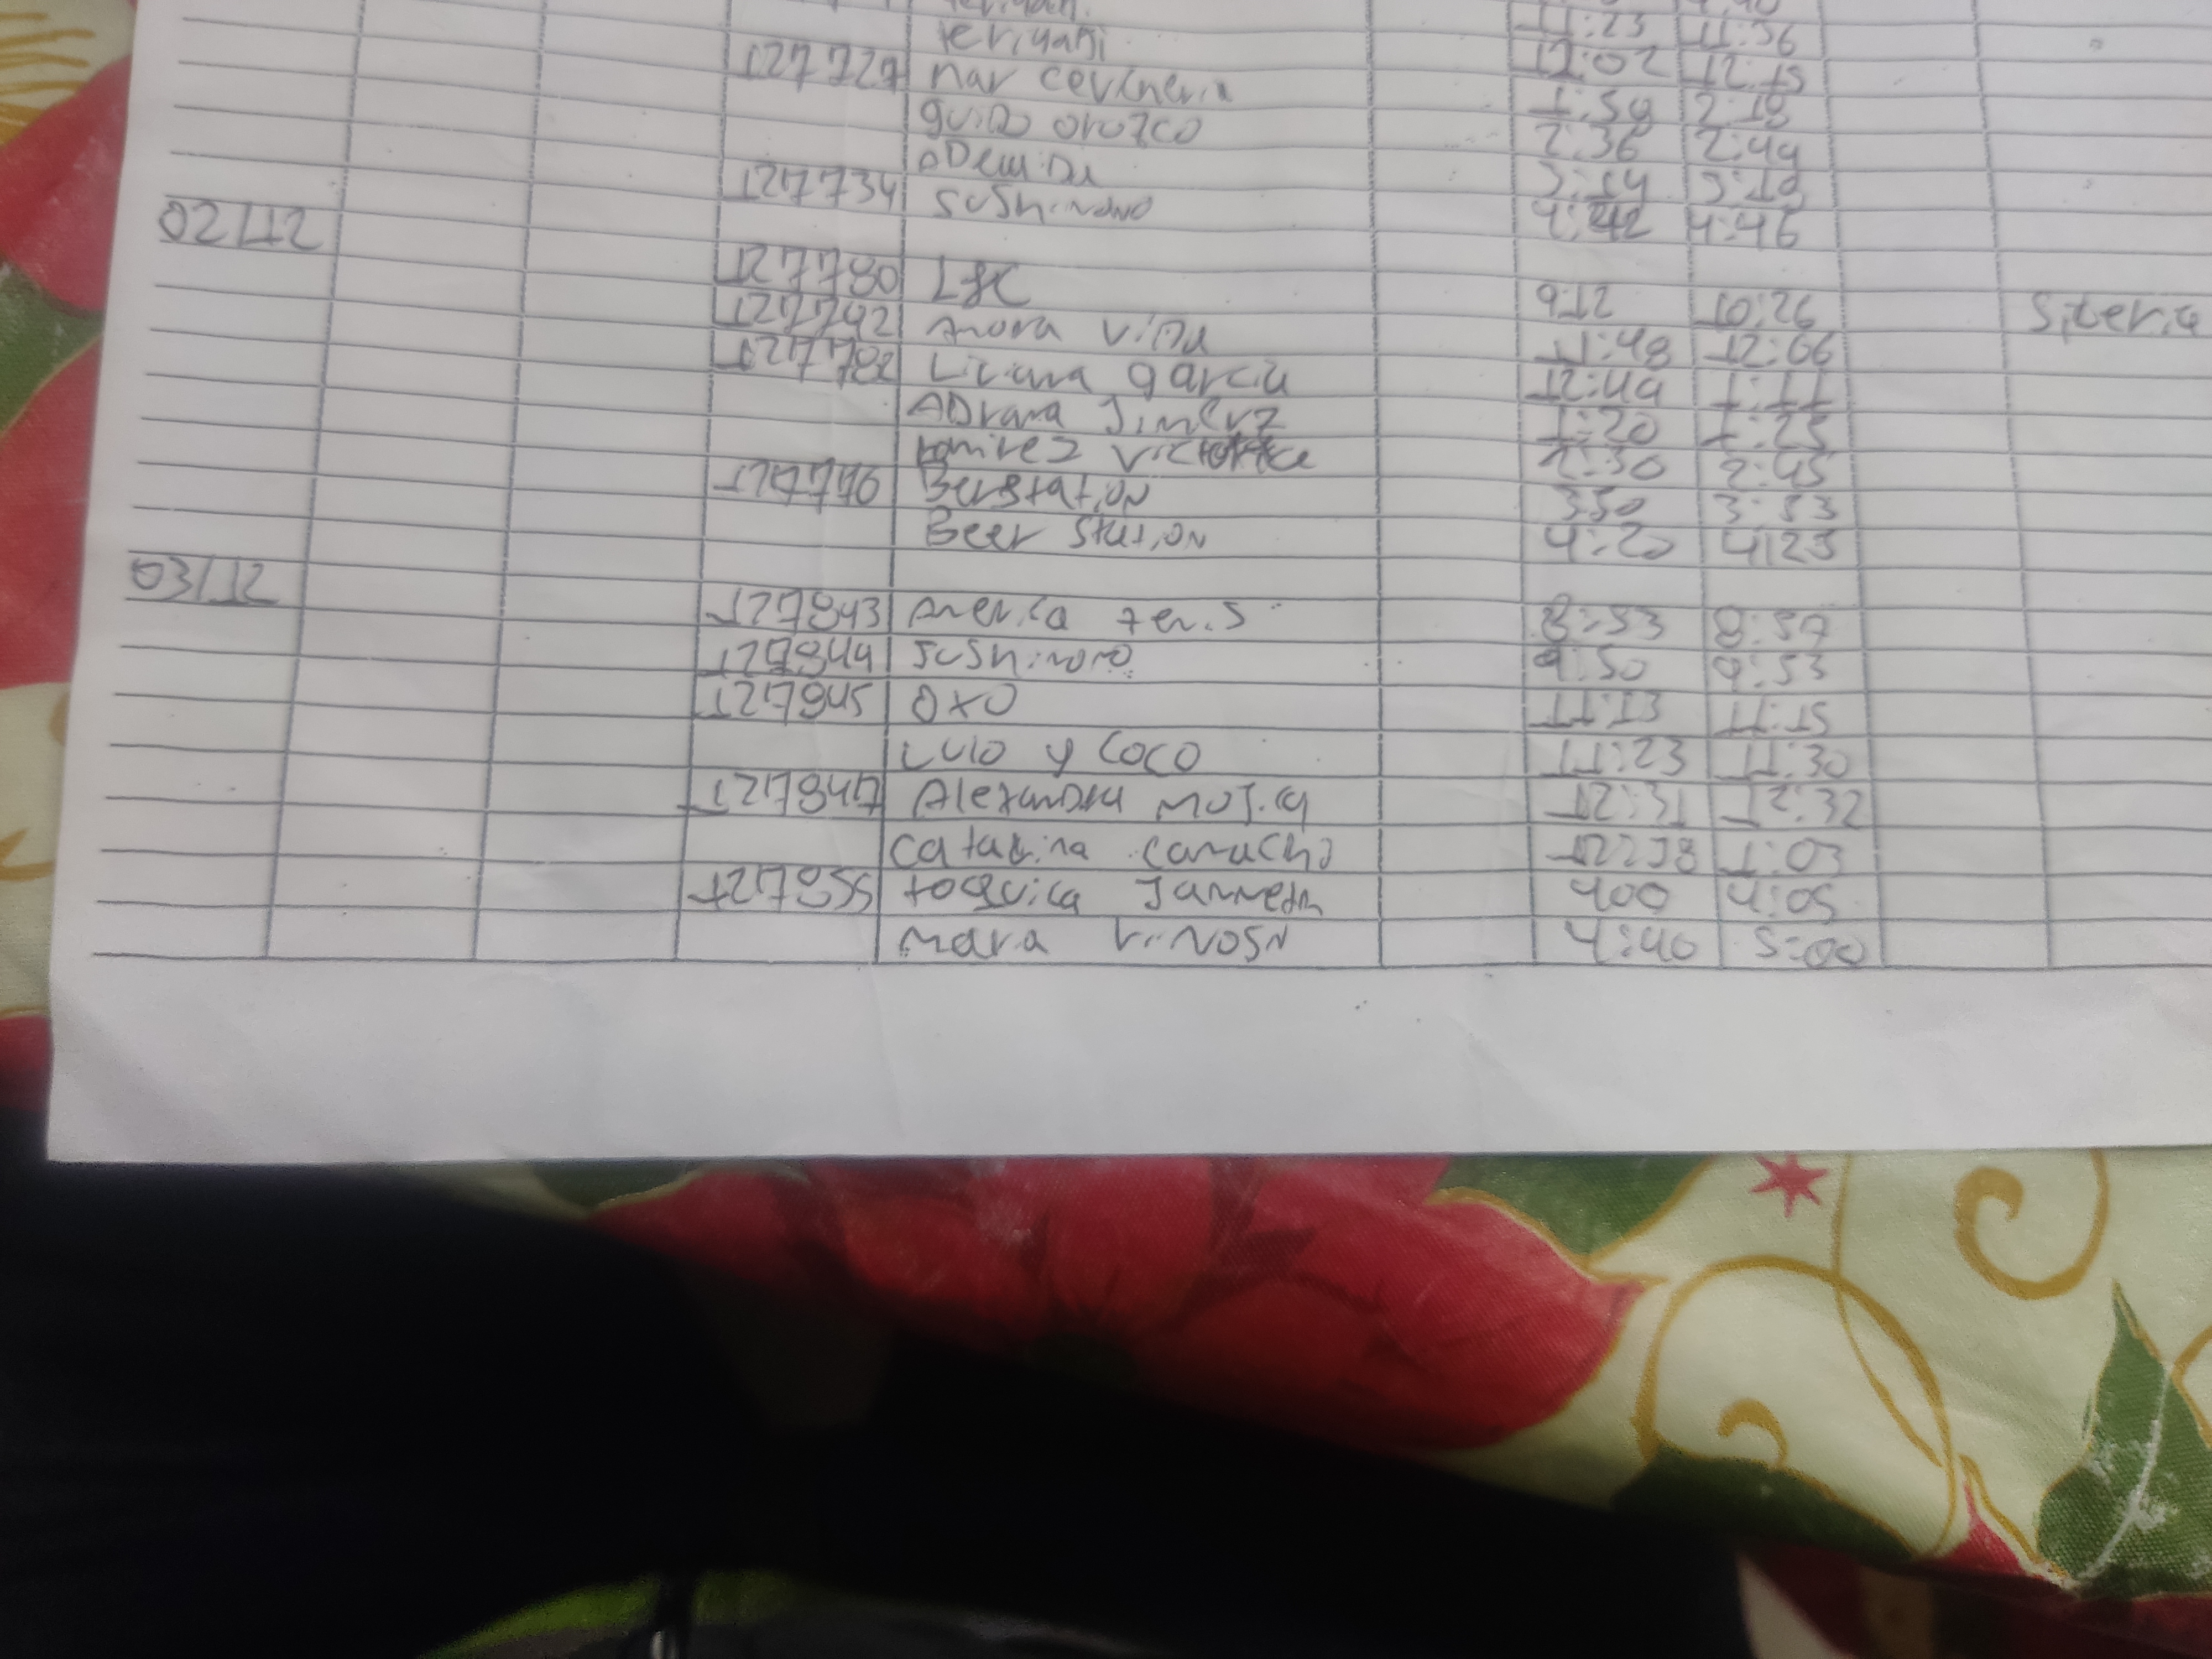 teriyaki 11:23 11:36
127727 mar cevicheria 12:02 12:15
guido orozco 1:59 2:18
2:36 2:49
127734 sushinono 3:14 3:18
4:42 4:46
02/12
127780 L&C 9:12 10:26
127792 Anora vida 11:48 12:06
127782 Liciana garcia 12:49 1:11
ADrana Jimerz 1:20 1:25
ramirez 2:30 2:45
127776 Berstation 350 3:53
Beer Station 4:20 4:23
03/12
127843 America tenis 8:53 8:57
127844 Sushinono 9:50 9:53
127845 OXO 11:13 11:15
LULO y COCO 11:23 11:30
127847 Alexandra Mojica 12:31 12:32
catarina camacho 1:03
127855 toquica Janneth 400 4:05
maria 4:40 5:00